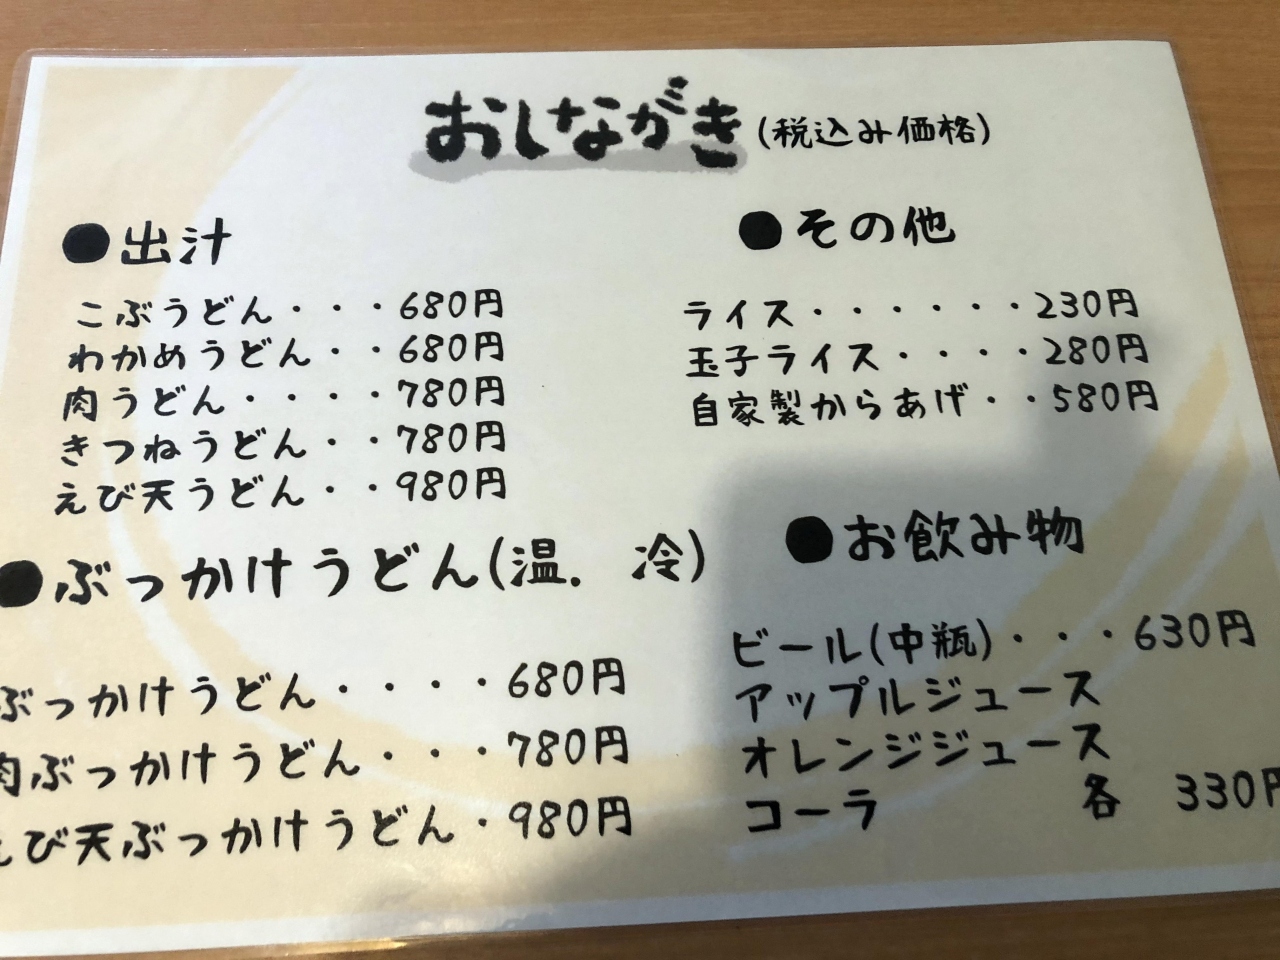 おしながき(税込み価格)
●出汁
こぶうどん・・・680円
わかめうどん・・680円
肉うどん・・・・780円
きつねうどん・・780円
えび天うどん・・980円
●ぶっかけうどん(温.冷)
ぶっかけうどん・・・・680円
肉ぶっかけうどん・・・780円
えび天ぶっかけうどん・980円
●その他
ライス・・・・・・230円
玉子ライス・・・・280円
自家製からあげ・・580円
●お飲み物
ビール(中瓶)・・・630円
アップルジュース
オレンジジュース
コーラ 各 330円